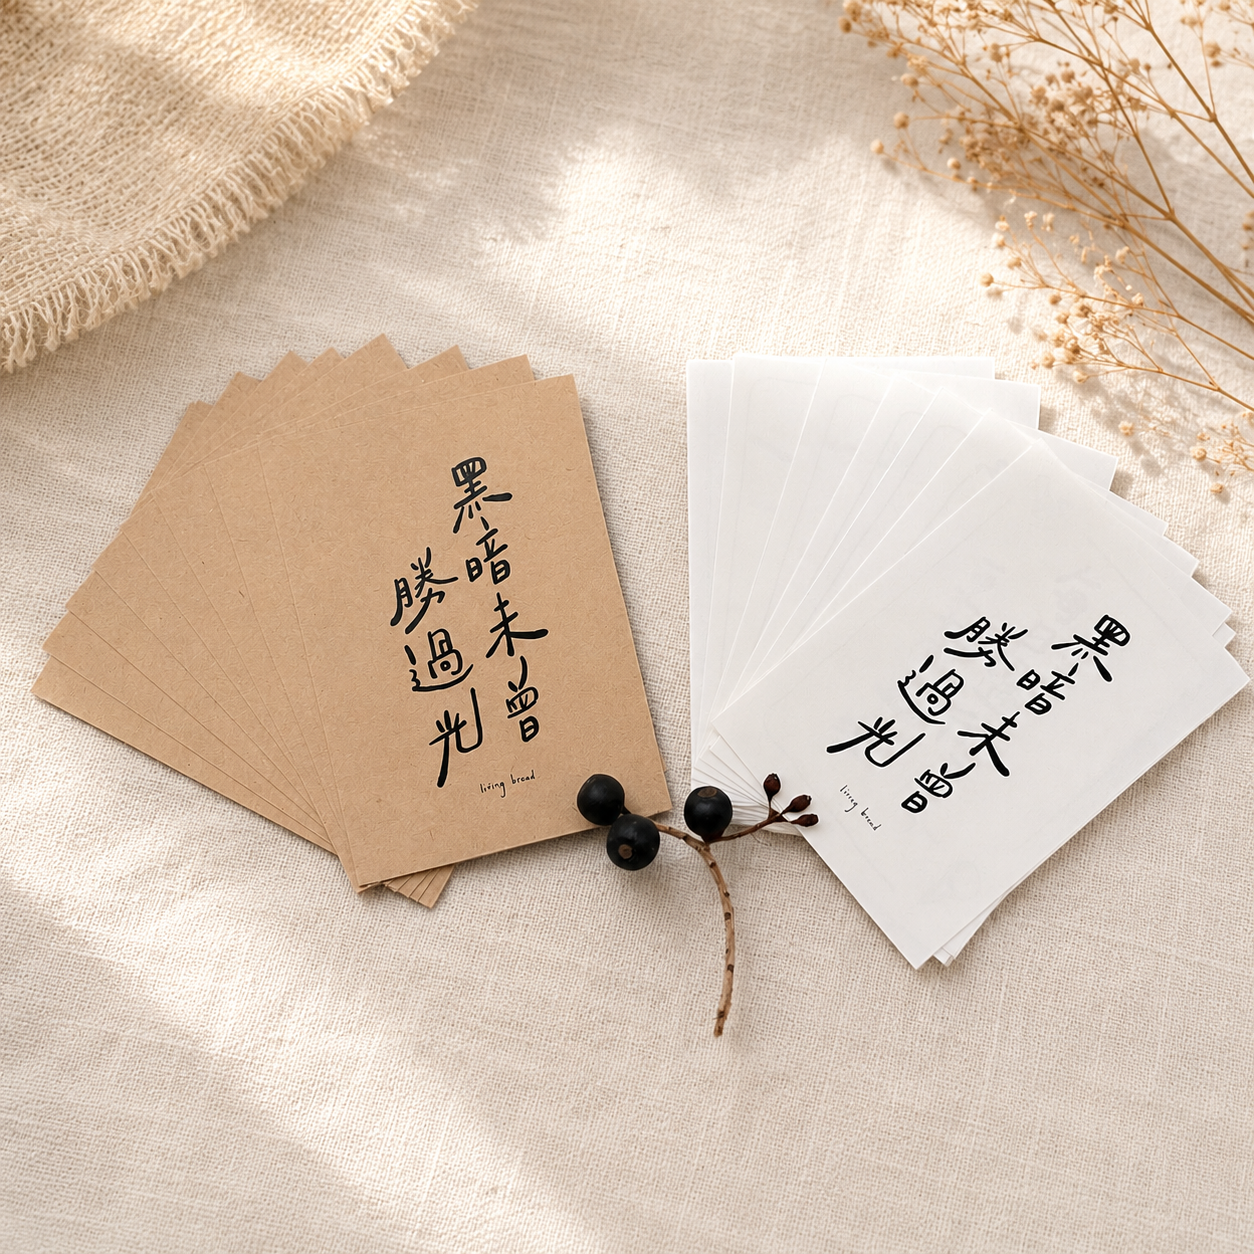 黑暗未曾
勝過光
living bread
黑暗未曾
勝過光
living bread